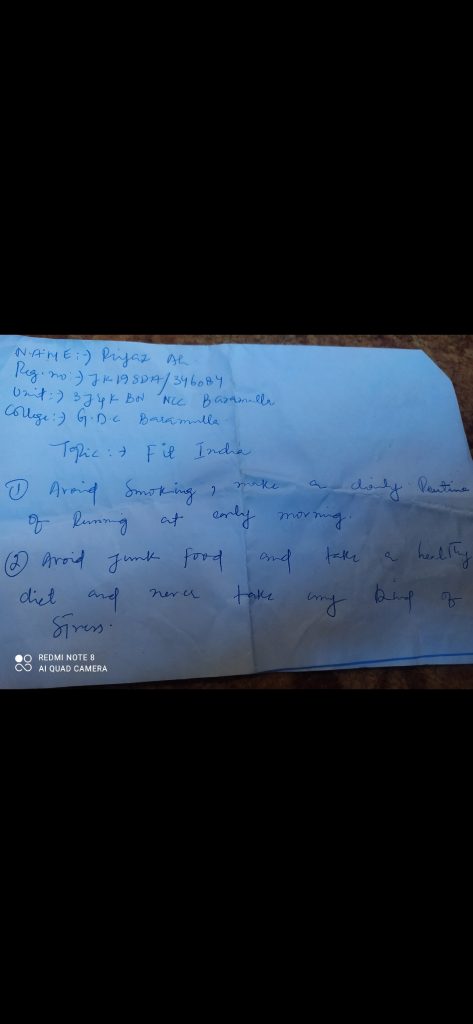 NAME :→ Riyaz Ah.
Reg. no :→ JK19SDA/346084
Unit :→ 3 J&K BN NCC Baramulla
College :→ G.D.C Baramulla.
Topic :→ Fit India
① Avoid Smoking, make a daily Routine
of Running at early morning.
② Avoid junk food and take a healthy
diet and never take any kind of
Stress.
REDMI NOTE 8
AI QUAD CAMERA